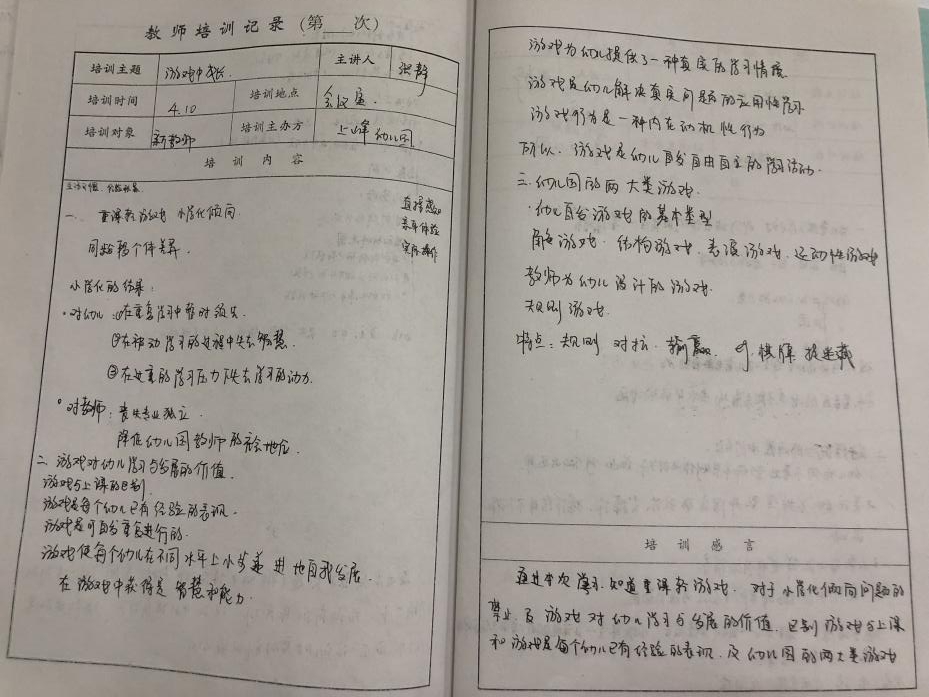 教师培训记录（第 次）
培训主题 游戏中成长 主讲人 张静
培训时间 4.10 培训地点 会议室
培训对象 新教师 培训主办方 上峰幼儿园
培训内容
一、重课轻游戏 小学化倾向
直接感知
亲身体验
实际操作
忽略个体差异.
小学化的结果:
·对幼儿:①在重复学习中暂时领先
②在被动学习的过程中失去智慧.
③在过重的学习压力下失去学习的动力.
·对教师:丧失专业独立.
降低幼儿园教师的社会地位.
二、游戏对幼儿学习与发展的价值.
游戏与上课的区别.
游戏是每个幼儿已有经验的表现.
游戏是可自发重复进行的.
游戏使每个幼儿在不同水平上小步递进地自我发展.
在游戏中获得是智慧和能力.
游戏为幼儿提供了一种真实的学习情境
游戏是幼儿解决真实问题的应用性学习
游戏行为是一种内在动机性行为
所以、游戏是幼儿自发自由自主的学习活动.
三.幼儿园的两大类游戏.
·幼儿自发游戏的基本类型
角色游戏、结构游戏、表演游戏、运动性游戏
教师为幼儿设计的游戏.
规则游戏.
特点:规则 对抗.输赢. 棋牌.捉迷藏
培训感言
通过本次学习.知道重课轻游戏.对于小学化倾向问题的
及游戏对幼儿学习与发展的价值.区别游戏与上课
和游戏是每个幼儿已有经验的表现.及幼儿园的两大类游戏